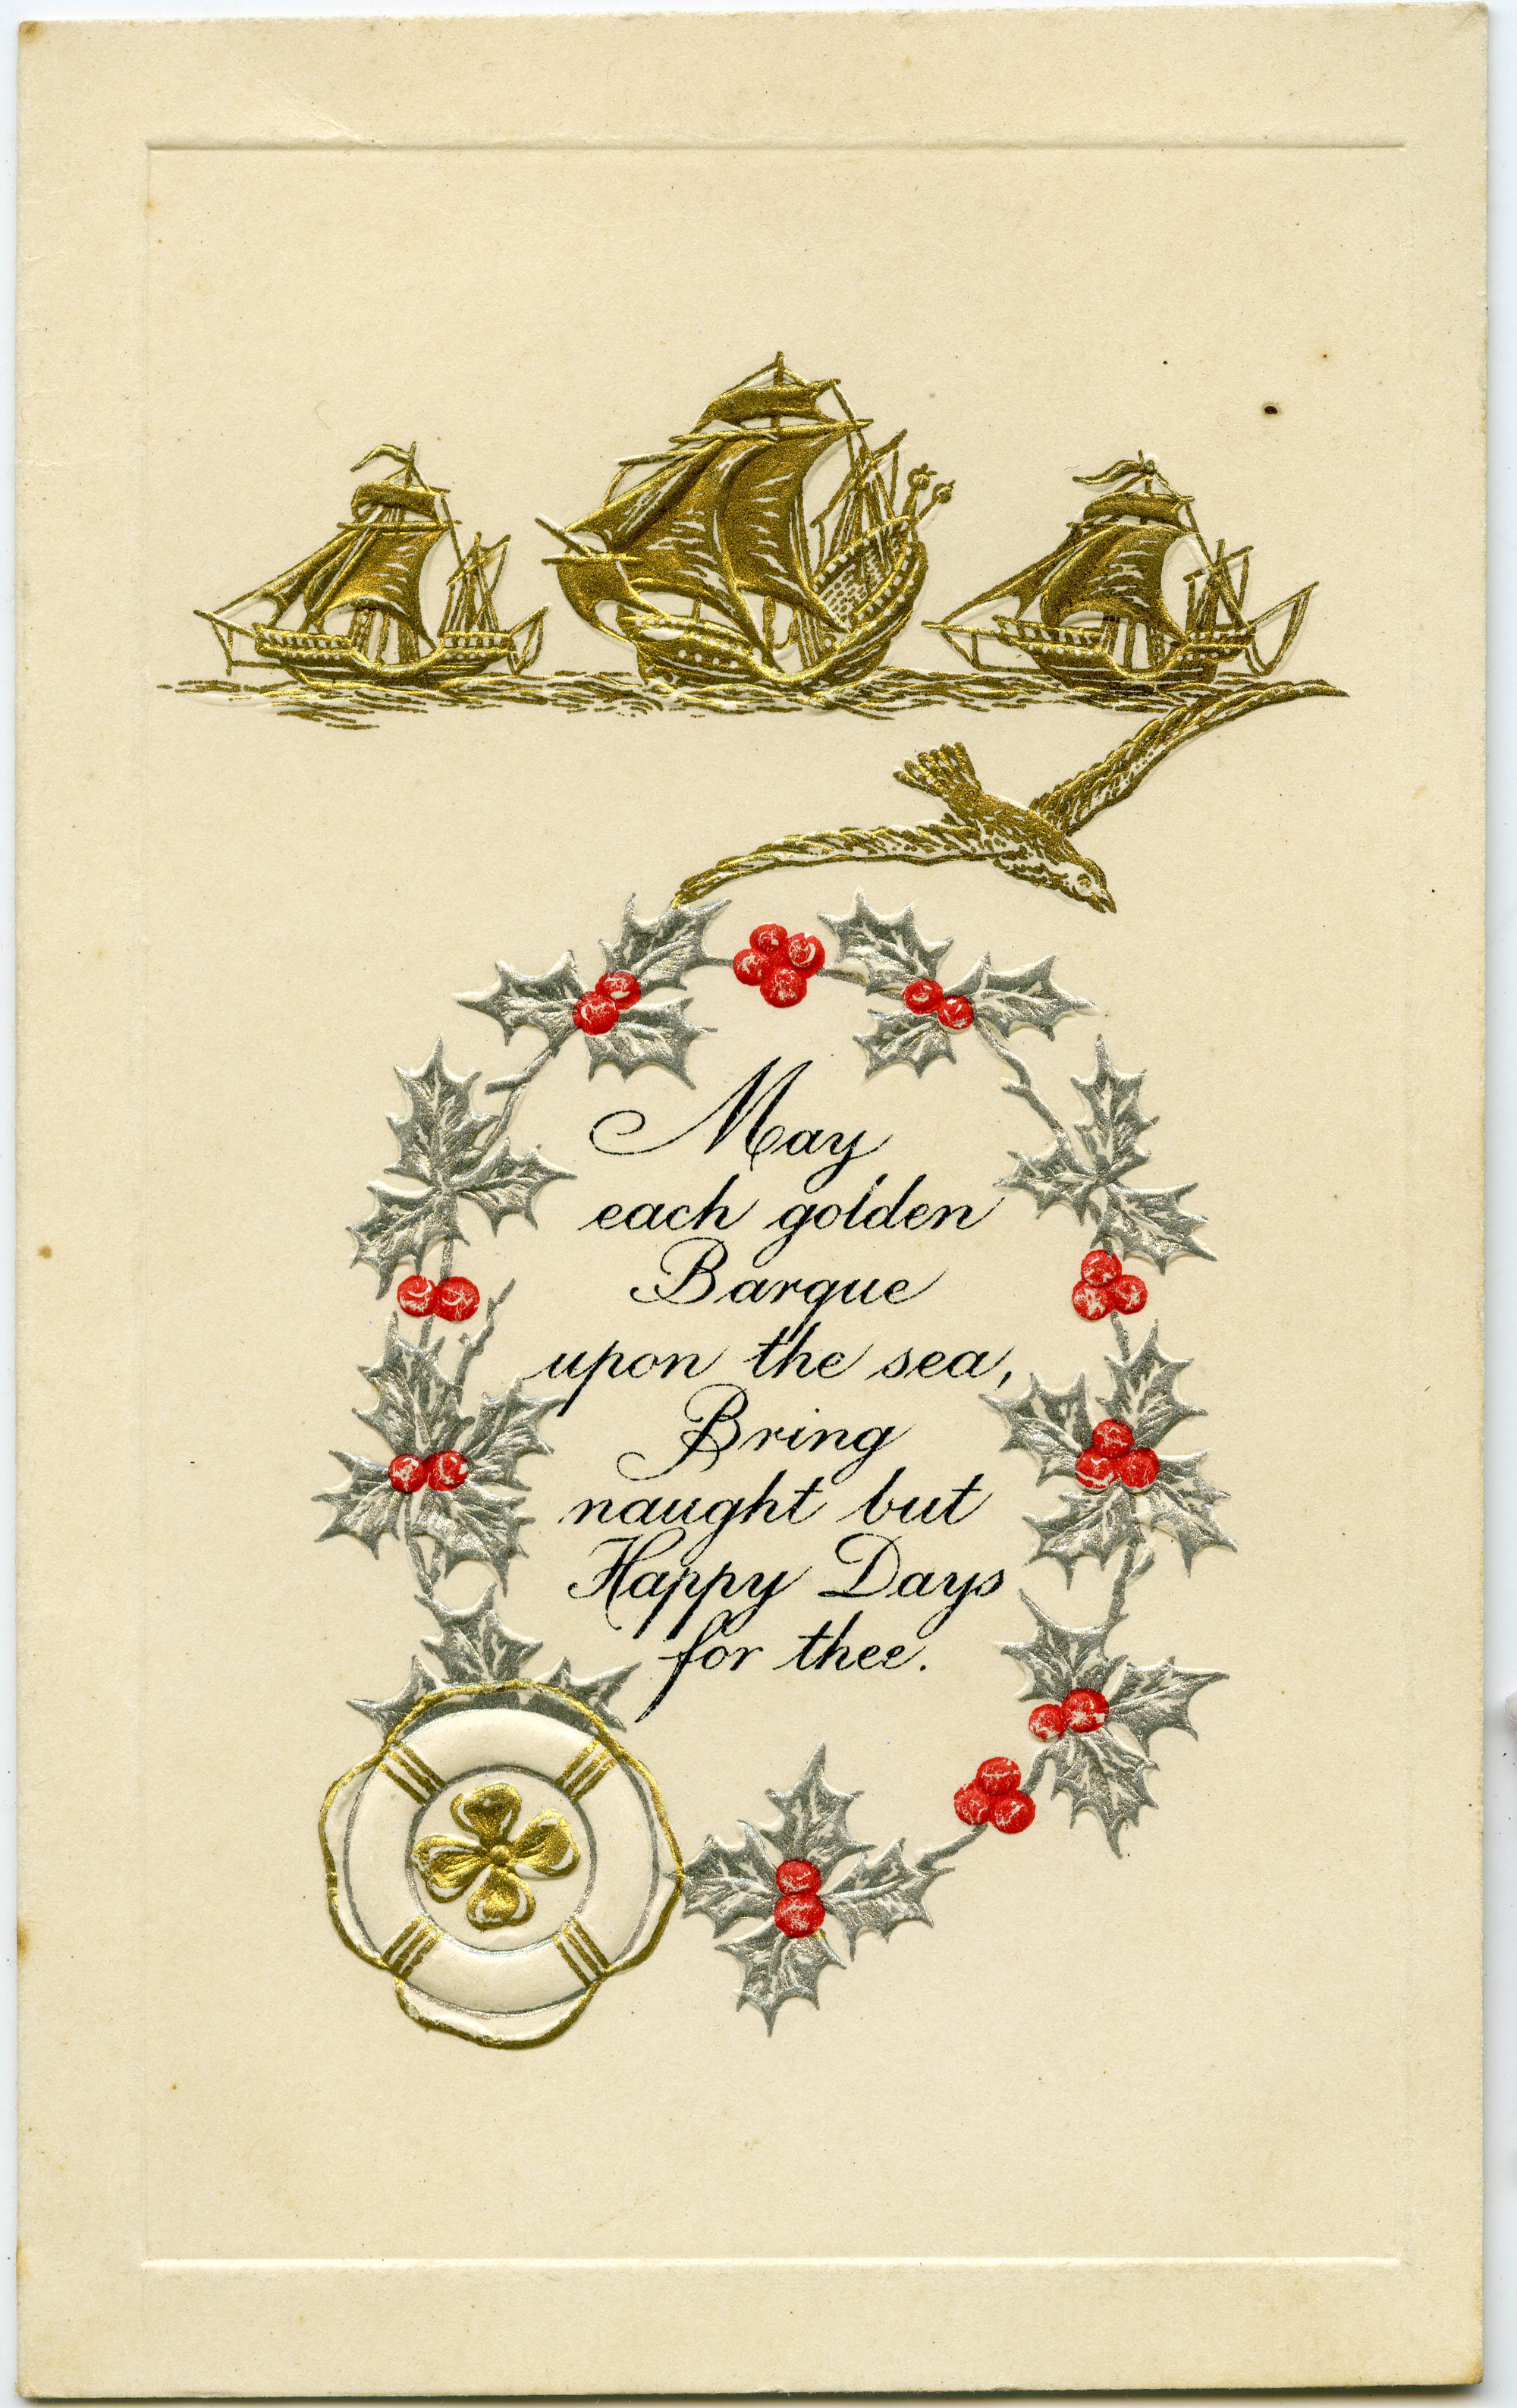 May
each golden
Barque
upon the sea,
Bring
naught but
Happy Days
for thee.